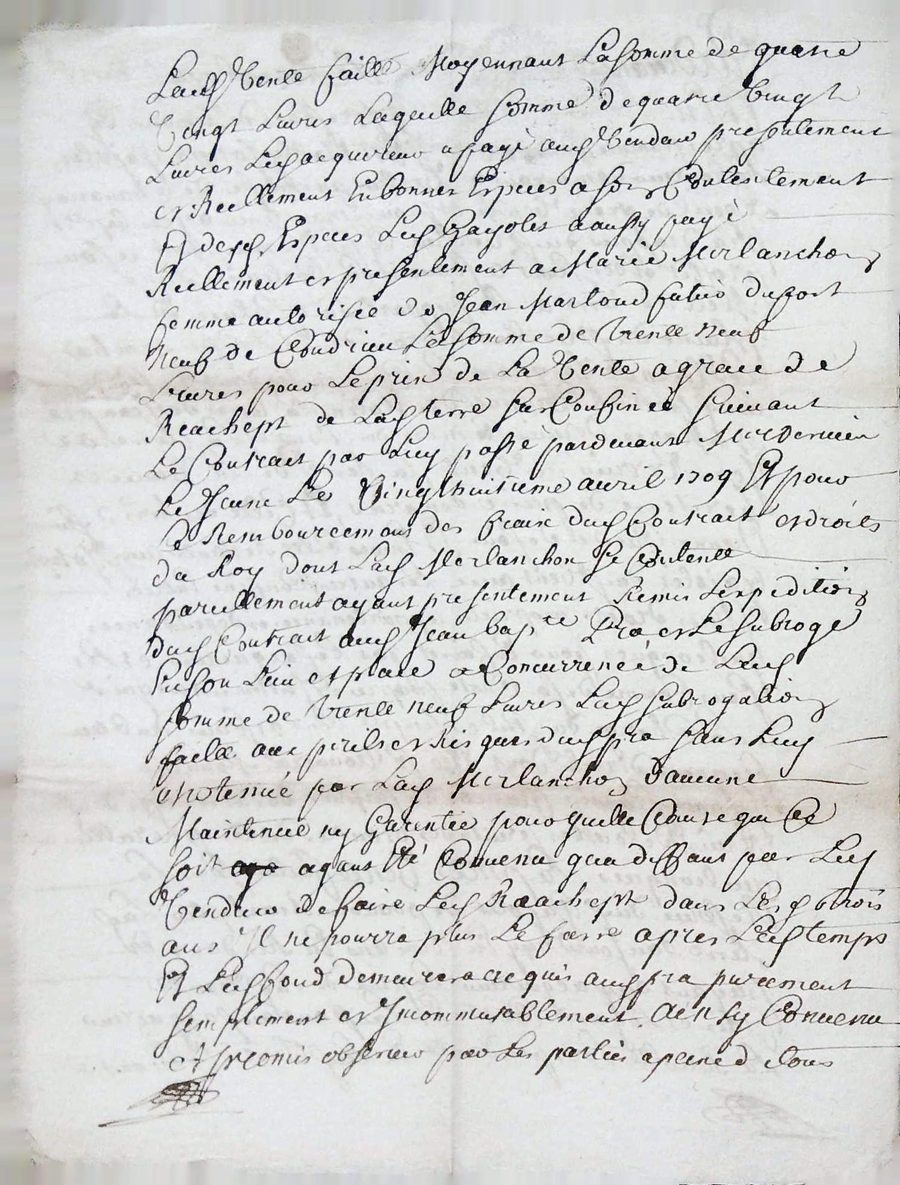 Lad. Vente faitte Moyennant La somme de quatre
Vingt Livres Laquelle somme de quatre Vingt
Livres Led. acquereur a payé aud. Vendeur presentement
et Reellement En bonnes Especes a son Contentement
Et desd. Especes Led. Gayolet a aussy payé
Reellement et presentement a Marie Merlanchon
femme authorisée de Jean Marloud du port
neuf de Condrieu La somme de trente neuf
Livres pour Le prix de La Vente a grace de
Reachept de Lad. terre sus Confinée suivant
Le Contrait par Luy passé pardevant Me
Le Jeune Le Vingt huitieme avril 1709 Et pour
Le Remboursement des fraix dud. Contrait et droits
du Roy dont Lad. Merlanchon se Contente
pareillement ayant presentement Remis L'expedition
dud. Contrait aud. Jean bapte. Pra et Le subroge
En son Lieu et place a Concurrence de Lad.
somme de trente neuf Livres Lad. subrogation
faitte aux perils et Risques dud. pra sans Luy
estre tenue par Lad. Merlanchon d'aucune
Maintenue ny Garentie pour quelle Cause que Ce
soit ayant Eté Convenu qu'a deffaut par Led.
Vendeur de faire Led. Reachept dans Lesd. trois
ans Il ne pourra plus Le faire apres Led. temps
Et Led. fond demeurera acquis aud. pra purement
semplement et Incommutablement. Ainsy Convenu
Et promis observer par Les parties a peine de tous